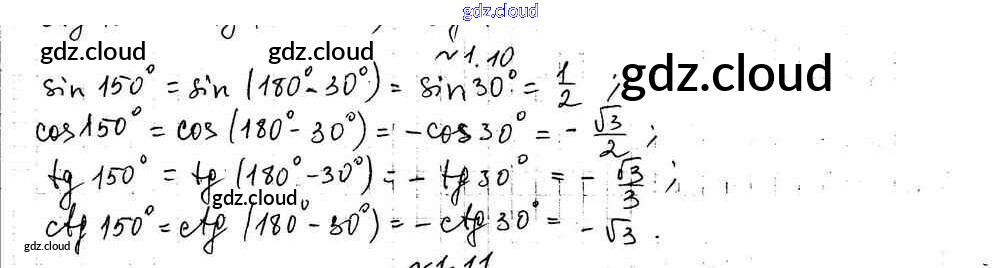 gdz.cloud
gdz.cloud gdz.cloud №1.10 gdz.cloud
sin 150° = sin (180° - 30°) = sin 30° = 1/2 ;
cos 150° = cos (180° - 30°) = - cos 30° = - √3/2 ;
tg 150° = tg (180° - 30°) = - tg 30° = - √3/3 ;
gdz.cloud
ctg 150° = ctg (180° - 30°) = - ctg 30° = - √3 .
gdz.cloud
№1.11